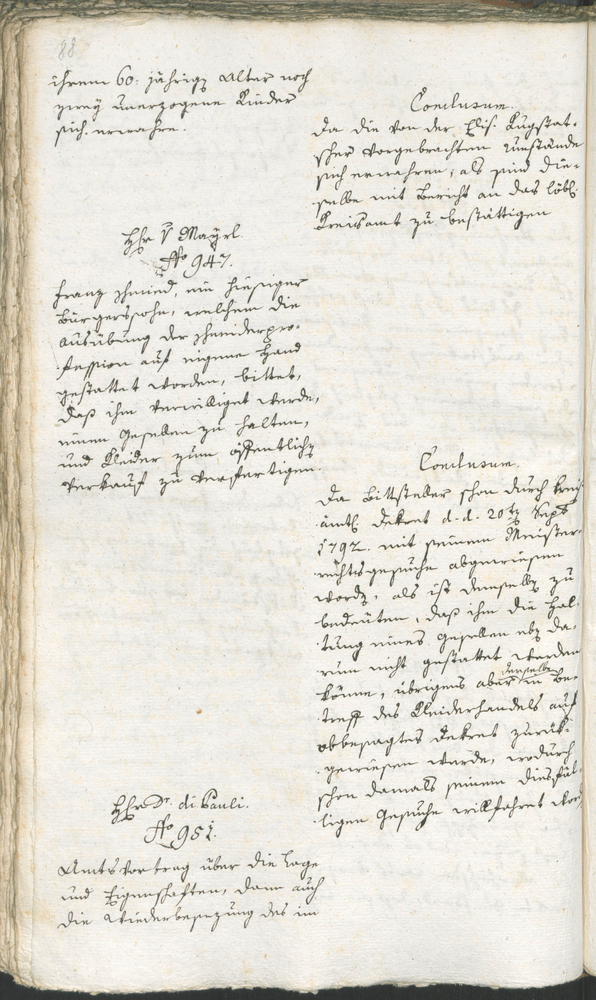 88
ihrem 60: jährigen Alter noch
zwey unerzogene Kinder
sich erwahre.
Conclusum.
Da die von der Elis. Kugstat-
scher vorgebrachten Umstände
sich erwahren, als sind die-
selbe mit Bericht an das löbl.
Kreisamt zu bestättigen
Hr v Mayrl.
No 947.
Franz Schmied, ein hiesiger
Bürgerssohn, welchem die
Ausübung der Schneiderpro-
fession auf eigene Hand
gestattet worden, bittet,
daß ihm verwilliget werde,
einen Gesellen zu halten,
und Kleider zum öffentlichen
Verkauf zu verfertigen.
Conclusum.
Da Bittsteller schon durch kreis
ämtl. Dekret d. d. 20ten Sept
1792. mit seinem Meister-
rechtsgesuche abgewiesen
worden, als ist demselben zu
bedeuten, daß ihm die Hal-
tung eines Gesellen eben da-
rum nicht gestattet werden
könne, übrigens aber derselbe in Be-
treff des Kleiderhandels auf
obbesagtes Dekret zurük-
gewiesen werde, wodurch
schon damals seinem diesfäl-
ligen Gesuche willfahret word
Hr Dr. di Pauli.
No 951.
Amtsvortrag über die Lage
und Eigenschaften, dann auch
die Wiederbesezung des im